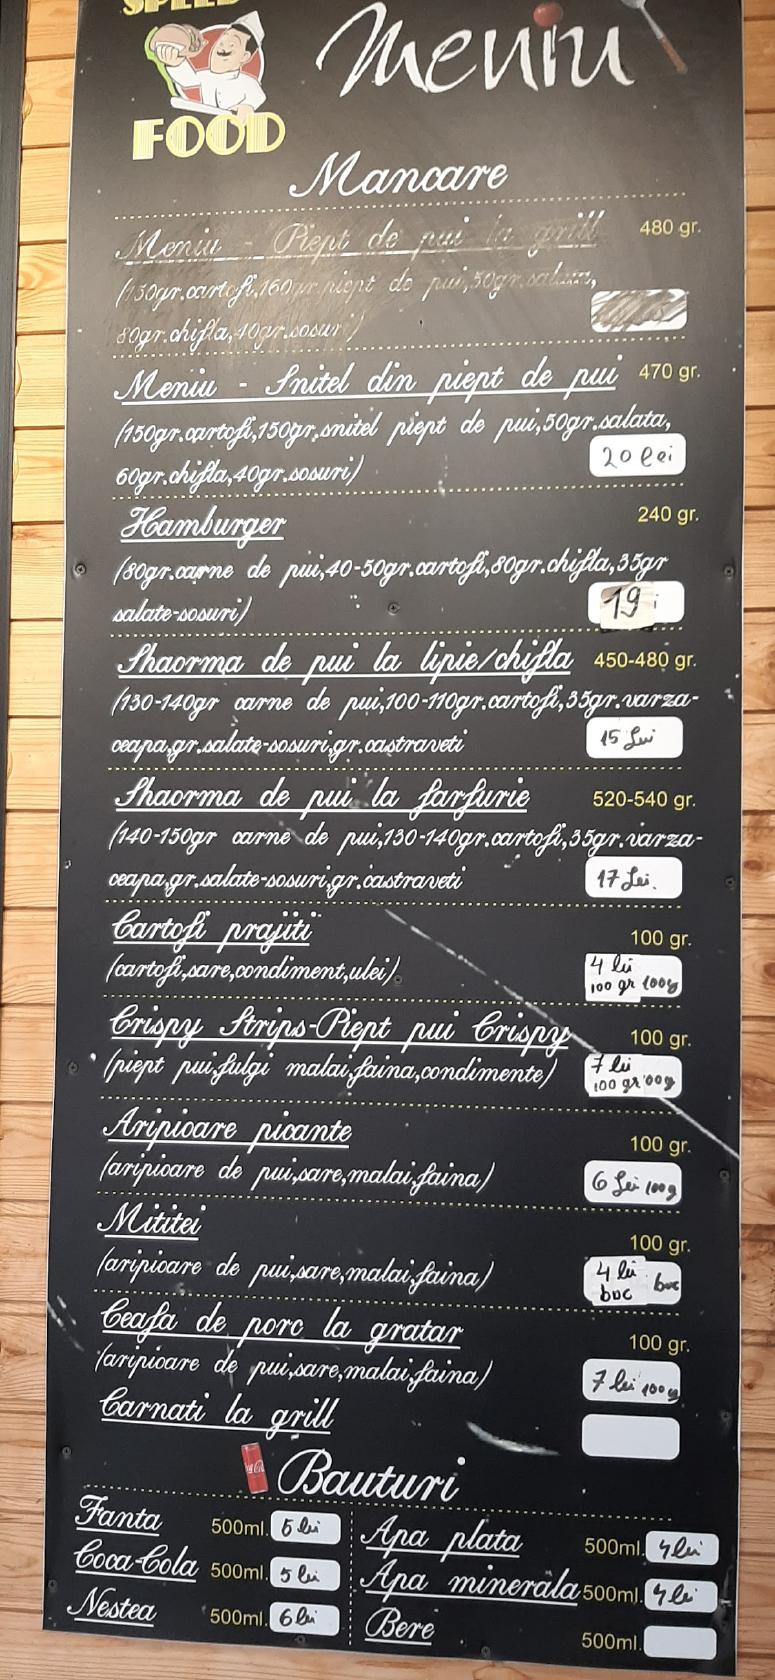 SPEED
FOOD
Meniu
Mancare
Meniu - Piept de pui la grill 480 gr.
(150gr.cartofi,160gr.piept de pui,50gr.salata,
80gr.chifla,40gr.sosuri)
Meniu - Snitel din piept de pui 470 gr.
(150gr.cartofi,150gr,snitel piept de pui,50gr.salata,
60gr.chifla,40gr.sosuri) 20 lei
Hamburger 240 gr.
(80gr.carne de pui,40-50gr.cartofi,80gr.chifla,35gr
salate-sosuri) 19
Shaorma de pui la lipie/chifla 450-480 gr.
(130-140gr carne de pui,100-110gr.cartofi,35gr.varza-
ceapa,gr.salate-sosuri,gr.castraveti 15 Lei
Shaorma de pui la farfurie 520-540 gr.
(140-150gr carne de pui,130-140gr.cartofi,35gr.varza-
ceapa,gr.salate-sosuri,gr.castraveti 17 Lei.
Cartofi prajiti 100 gr.
(cartofi,sare,condiment,ulei) 4 lei
100 gr 100g
Crispy Strips-Piept pui Crispy 100 gr.
(piept pui,fulgi malai,faina,condimente) 7 lei
100 gr 00g
Aripioare picante 100 gr.
(aripioare de pui,sare,malai,faina) 6 Lei 100g
Mititei 100 gr.
(aripioare de pui,sare,malai,faina) 4 lei
buc buc
Ceafa de porc la gratar 100 gr.
(aripioare de pui,sare,malai,faina) 7 lei 100g
Carnati la grill
Bauturi
Fanta 500ml. 5 lei
Coca-Cola 500ml. 5 lei
Nestea 500ml. 6 lei
Apa plata 500ml. 4 lei
Apa minerala 500ml. 4 lei
Bere 500ml.